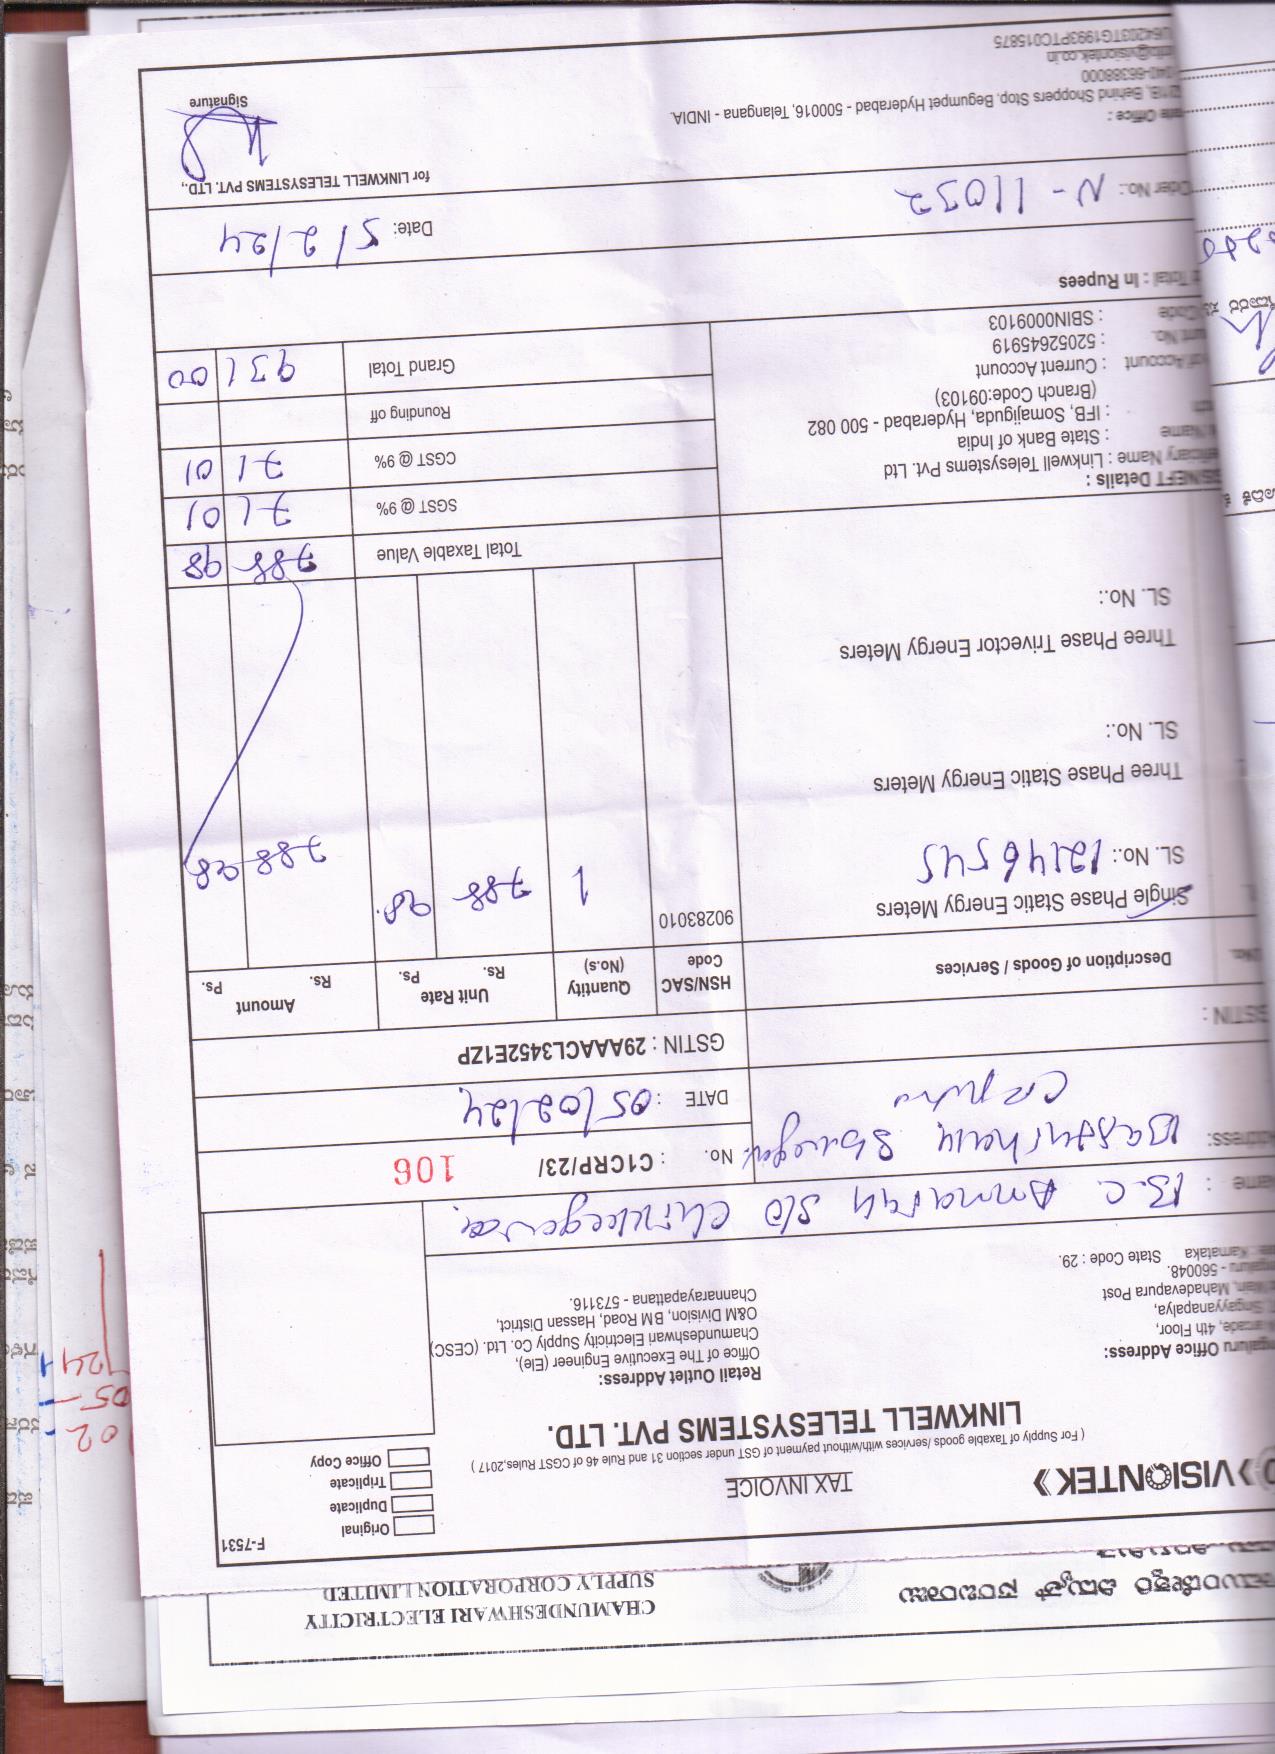 CHAMUNDESHWARI ELECTRICITY
SUPPLY CORPORATION LIMITED
F-7531
VISIONTEK
TAX INVOICE
( For Supply of Taxable goods /services with/without payment of GST under section 31 and Rule 46 of CGST Rules,2017 )
LINKWELL TELESYSTEMS PVT. LTD.
Original
Duplicate
Triplicate
Office Copy
Office Address:
4th Floor,
Singayyanapalya,
Mahadevapura Post
- 560048.
Karnataka State Code : 29.
Retail Outlet Address:
Office of The Executive Engineer (Ele),
Chamundeshwari Electricity Supply Co. Ltd. (CESC)
O&M Division, BM Road, Hassan District,
Channarayapattana - 573116.
: B.C. Annaiah S/o
No. : C1CRP/23/ 106
DATE : 05/02/24
GSTIN : 29AAACL3452E1ZP
GSTIN :
Description of Goods / Services
HSN/SAC Code
Quantity (No.s)
Unit Rate Rs. Ps.
Amount Rs. Ps.
Single Phase Static Energy Meters 90283010 1 788 98. 788 98
SL. No.: 12146545
Three Phase Static Energy Meters
SL. No.:
Three Phase Trivector Energy Meters
SL. No.:
Total Taxable Value 788 98
SGST @ 9% 71 01
CGST @ 9% 71 01
Rounding off
Grand Total 931 00
NEFT Details :
Name : Linkwell Telesystems Pvt. Ltd
Name : State Bank of India
: IFB, Somajiguda, Hyderabad - 500 082
(Branch Code:09103)
of Account : Current Account
No. : 52052645919
Code : SBIN0009103
Total : In Rupees
Order No.: N-11032
Date: 5/2/24
for LINKWELL TELESYSTEMS PVT. LTD.,
Signature
Office :
Behind Shoppers Stop, Begumpet Hyderabad - 500016, Telangana - INDIA.
040-66388000
info@visiontek.co.in
U64203TG1993PTC015875